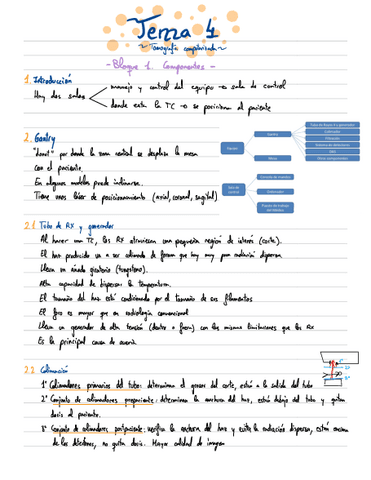 Tema 4
~ Tomografía computarizada ~
- Bloque 1. Componentes -
1. Introducción
Hay dos salas
manejo y control del equipo → sala de control
donde esta la TC → se posiciona al paciente
2. Gantry
"donut" por donde la zona central se desplaza la mesa
con el paciente.
En algunos modelos puede inclinarse.
Tiene unos láser de posicionamiento (axial, coronal, sagital)
Equipo
Gantry
Mesa
Tubo de Rayos X y generador
Colimador
Filtración
Sistema de detectores
DAS
Otros componentes
Sala de control
Consola de mandos
Ordenador
Puesto de trabajo del médico
2.1 Tubo de RX y generador
Al hacer un TC, los RX atraviesan una pequeña región de interés (corte).
El haz producido va a ser colimado de forma que hay muy poca radiación dispersa.
Lleva un ánodo giratorio (tungsteno).
Alta capacidad de dispersar la temperatura.
El tamaño del haz está condicionado por el tamaño de sus filamentos
El foco es mayor que en radiología convencional
Lleva un generador de alta tensión (dentro o fuera) con las mismas limitaciones que los RX
Es la principal causa de avería.
2.2. Colimación
1º Colimadores primarios del tubo: determinan el grosor del corte, está a la salida del tubo
2º Conjunto de colimadores prepaciente: determinan la anchura del haz, está debajo del tubo y quitan
dosis al paciente.
3º Conjunto de colimadores postpaciente: verifica la anchura del haz y evita la radiación dispersa, están encima
de los detectores, no quita dosis. Mayor calidad de imagen